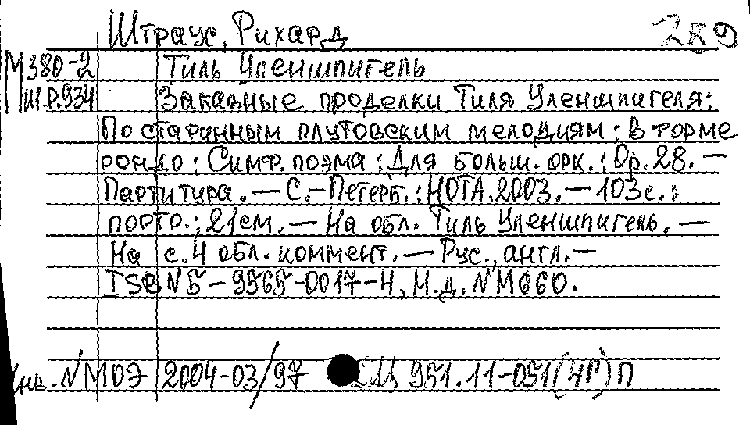 Штраус, Рихард 259
М380-2 Тиль Уленшпигель
Ш.Р.934 Забавные проделки Тиля Уленшпигеля:
По старинным плутовским мелодиям: в форме
рондо: Симф. поэма: Для больш. орк.: Op. 28. —
Партитура. — С.-Петерб.: НОТА, 2003. — 103 с.:
портр.; 21 см. — На обл. Тиль Уленшпигель. —
На с. 4 обл. коммент. — Рус., англ. —
ISBN 5-9565-0017-4, Н.д. N М660.
Инв. N МОЭ 2004-03/97 951.11-051(4Г) П